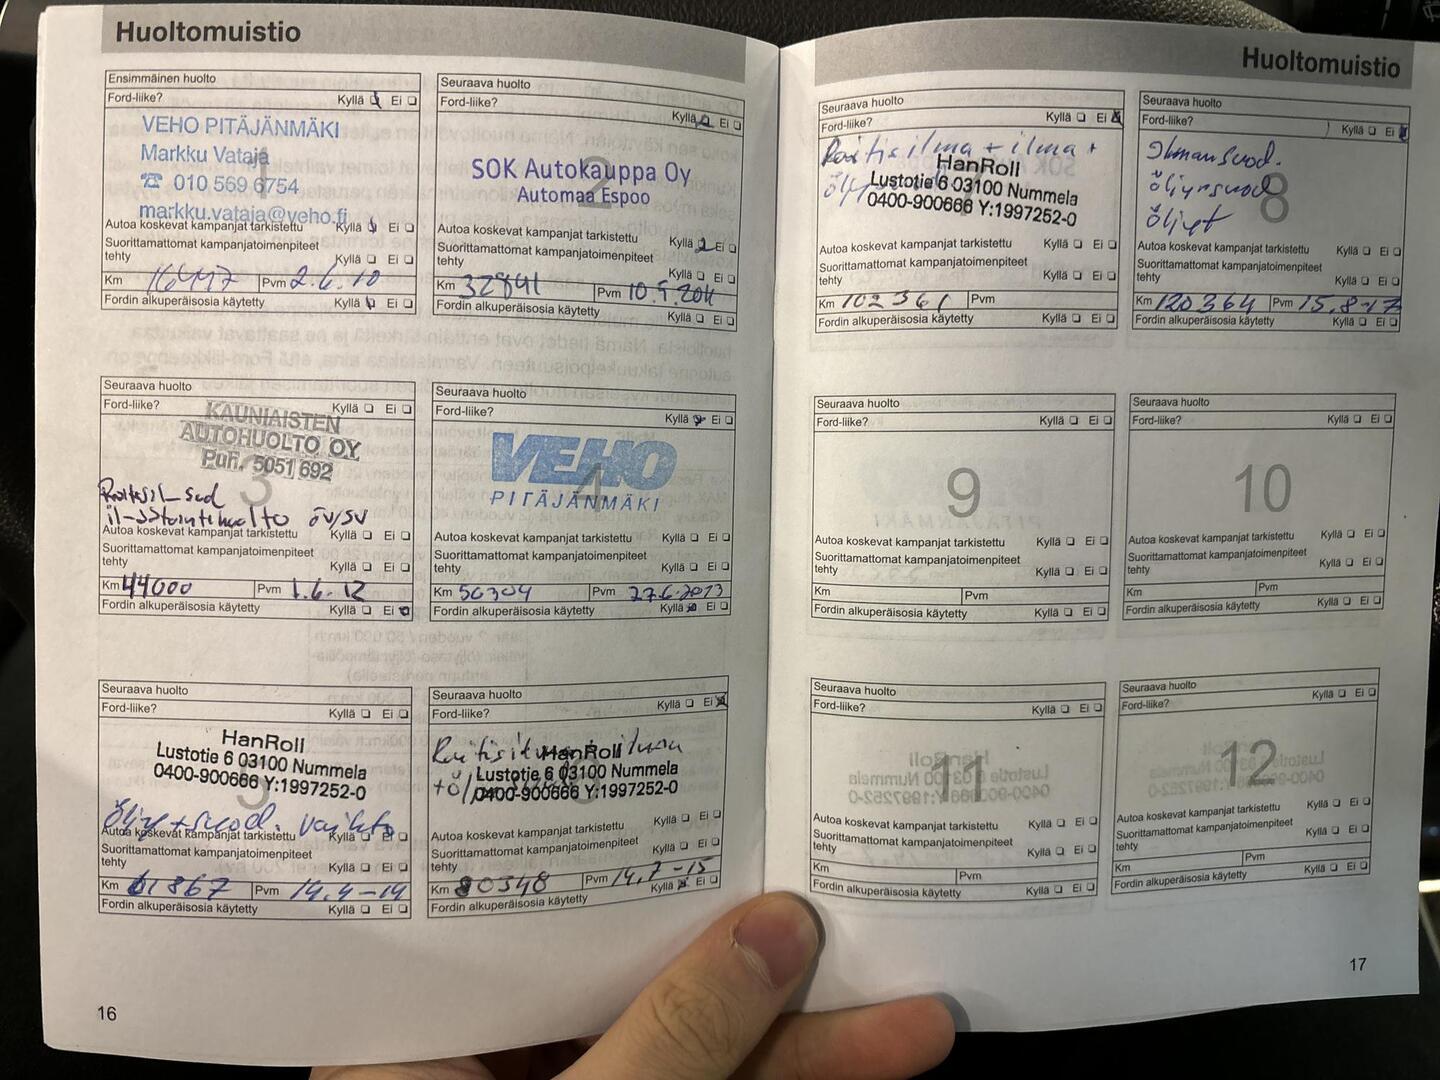 Huoltomuistio
Ensimmäinen huolto
Ford-liike? Kyllä Ei
VEHO PITÄJÄNMÄKI
Markku Vataja
1
☎ 010 569 6754
markku.vataja@veho.fi
Autoa koskevat kampanjat tarkistettu Kyllä Ei
Suorittamattomat kampanjatoimenpiteet
tehty Kyllä Ei
Km 16447 Pvm 2.6.10
Fordin alkuperäisosia käytetty Kyllä Ei
Seuraava huolto
Ford-liike? Kyllä Ei
2
SOK Autokauppa Oy
Automaa Espoo
Autoa koskevat kampanjat tarkistettu Kyllä Ei
Suorittamattomat kampanjatoimenpiteet
tehty Kyllä Ei
Km 32841 Pvm 10.9.2011
Fordin alkuperäisosia käytetty Kyllä Ei
Seuraava huolto
Ford-liike? Kyllä Ei
KAUNIAISTEN
AUTOHUOLTO OY
Puh. 5051 692
3
Raitisil-sud
öV/SV
Autoa koskevat kampanjat tarkistettu Kyllä Ei
Suorittamattomat kampanjatoimenpiteet
tehty Kyllä Ei
Km 44000 Pvm 1.6.12
Fordin alkuperäisosia käytetty Kyllä Ei
Seuraava huolto
Ford-liike? Kyllä Ei
VEHO
4
PITÄJÄNMÄKI
Autoa koskevat kampanjat tarkistettu Kyllä Ei
Suorittamattomat kampanjatoimenpiteet
tehty Kyllä Ei
Km 50304 Pvm 27.6.2013
Fordin alkuperäisosia käytetty Kyllä Ei
Seuraava huolto
Ford-liike? Kyllä Ei
HanRoll
Lustotie 6 03100 Nummela
0400-900666 Y:1997252-0
5
Öljy + suod. vaihto
Autoa koskevat kampanjat tarkistettu Kyllä Ei
Suorittamattomat kampanjatoimenpiteet
tehty Kyllä Ei
Km 61867 Pvm 14.4-14
Fordin alkuperäisosia käytetty Kyllä Ei
Seuraava huolto
Ford-liike? Kyllä Ei
Raitisilma + ilma
HanRoll
Lustotie 6 03100 Nummela
0400-900666 Y:1997252-0
Autoa koskevat kampanjat tarkistettu Kyllä Ei
Suorittamattomat kampanjatoimenpiteet
tehty Kyllä Ei
Km 80348 Pvm 14.7-15
Fordin alkuperäisosia käytetty Kyllä Ei
16
Huoltomuistio
Seuraava huolto
Ford-liike? Kyllä Ei
Raitisilma + ilma +
HanRoll
Lustotie 6 03100 Nummela
0400-900666 Y:1997252-0
Autoa koskevat kampanjat tarkistettu Kyllä Ei
Suorittamattomat kampanjatoimenpiteet
tehty Kyllä Ei
Km 102361 Pvm
Fordin alkuperäisosia käytetty Kyllä Ei
Seuraava huolto
Ford-liike? Kyllä Ei
Ilmansuod.
öljynsuod
8
öljyt
Autoa koskevat kampanjat tarkistettu Kyllä Ei
Suorittamattomat kampanjatoimenpiteet
tehty Kyllä Ei
Km 120364 Pvm 15.8-17
Fordin alkuperäisosia käytetty Kyllä Ei
Seuraava huolto
Ford-liike? Kyllä Ei
9
Autoa koskevat kampanjat tarkistettu Kyllä Ei
Suorittamattomat kampanjatoimenpiteet
tehty Kyllä Ei
Km Pvm
Fordin alkuperäisosia käytetty Kyllä Ei
Seuraava huolto
Ford-liike? Kyllä Ei
10
Autoa koskevat kampanjat tarkistettu Kyllä Ei
Suorittamattomat kampanjatoimenpiteet
tehty Kyllä Ei
Km Pvm
Fordin alkuperäisosia käytetty Kyllä Ei
Seuraava huolto
Ford-liike? Kyllä Ei
11
Autoa koskevat kampanjat tarkistettu Kyllä Ei
Suorittamattomat kampanjatoimenpiteet
tehty Kyllä Ei
Km Pvm
Fordin alkuperäisosia käytetty Kyllä Ei
Seuraava huolto
Ford-liike? Kyllä Ei
12
Autoa koskevat kampanjat tarkistettu Kyllä Ei
Suorittamattomat kampanjatoimenpiteet
tehty Kyllä Ei
Km Pvm
Fordin alkuperäisosia käytetty Kyllä Ei
17